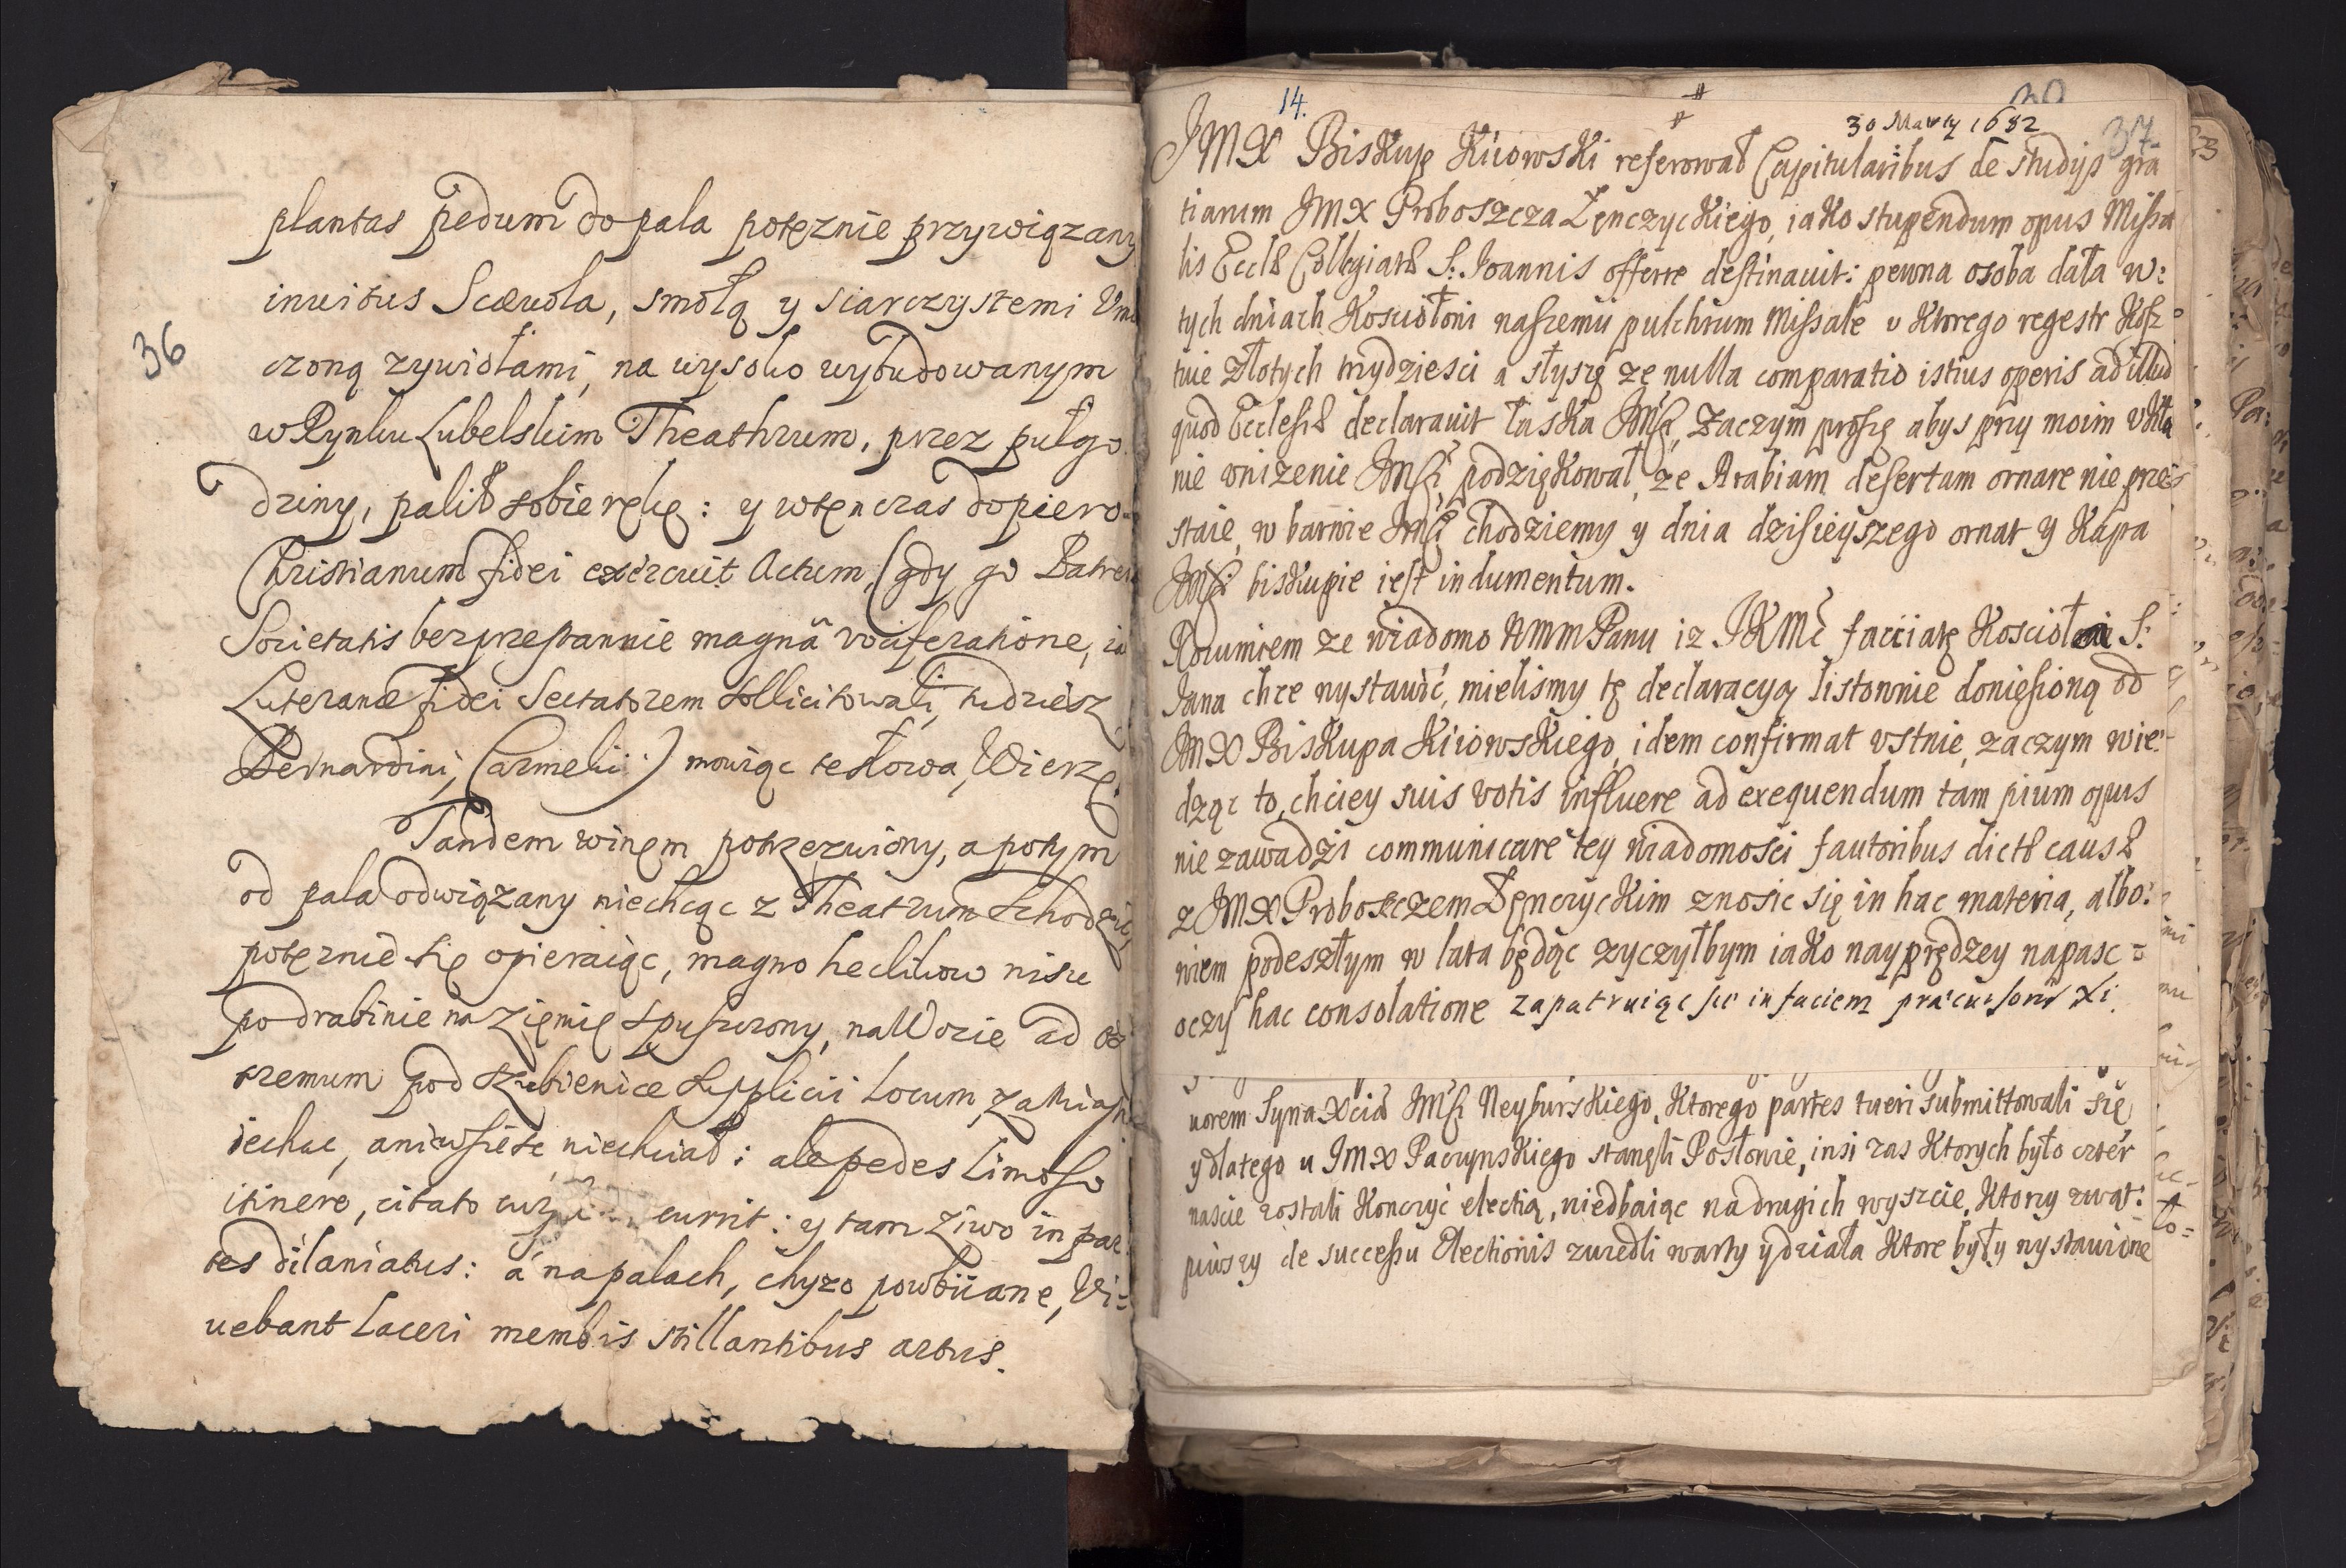 36
plantas pedum do pala potęznie przywiązany
inuitus Scæuola, smołą y siarczystemi
czoną zywiołami, na wysoko wybudowanym
w Rynku Lubelskim Theathrum, przez pułgo
dziny, palił sobie rękę: y wtenczas dopiero
Christianum fidei exercuit Actum, (gdy go
Societatis bezprestannie magnâ vociferatione,
Luteranæ fidei Sectatorem sollicitowali, tudziesz
Bernardini, Carmelici) mowiąc te słowa, Wierzę.
Tandem winem potrzezwiony, a potym
od pala odwiązany niechcąc z Theatrum schodzić,
potęznie się opieraiąc, magno heclikow nisu
po drabinie na Zięmię spuszczony, na Wozie ad
tremum pod szubienice supplicii Locum,
iechac, ani wsieść niechciał: ale pedes Limoso
itinere, citato currit: y tam zÿwo in par
tes dilaniatus: á na palach, chyzo powbiiane, Vi=
uebant Laceri membris stillantibus artus.
14.
30 Marty 1682
37
JMX Biskup Kiiowski referował Capitularibus de studijs gra
tiarum JMX Proboszcza Łęnczyckiego, iako stupendum opus Missa
lis Eccle Collegiate S: Joannis offerre destinauit: pewna osoba dała w:
tych dniach Kosciołowi naszemu pulchrum Missale u ktorego regestr Kosz
tuie złotych trzydziesci a słyszę ze nulla comparatio istius operis ad illud
quod Ecclesiæ declarauit łaska JMśi, zaczym proszę abys przy moim Vkła
nie vnizenie JMśi podziękował, ze Arabiam desertam ornare nie prze
staie, w barwie JMśi chodziemy y dnia dzisieyszego ornat y Kapa
JMśi biskupie iest indumentum.
Rozumiem ze wiadomo WMMPanu iz JKMć facciatę Kościoła S:
Jana chce wystawić, mielismy tę declaracyą listownie doniesioną od
JMX Biskupa Kiiowskiego, idem confirmat vstnie, zaczym wie
dząc to, chciey suis votis influere ad exequendum tam pium opus
nie zawadzi communicare tey wiadomosci fautoribus dictæ causæ
z JMX Proboszczem Łęnczyckim znosic się in hac materia, albo:
wiem podeszłym w lata będąc zyczyłbym iako nayprędzey napasc =
oczy hac consolatione zapatruiąc sie in faciem præcursoris Xi.
uorem Syna Xcia JMśi Neyburskiego, Ktorego partes tueri submittowali się
y dlatego u JMX Paczynskiego stanęli Posłowie, insi zas Ktorych było czter
nascie zostali Konczyć electią, niedbaiąc na drugich wyszcie, Ktorzy zwąt:
piwszy de successu Electionis zwiedli warty y działa Ktore były wystawione